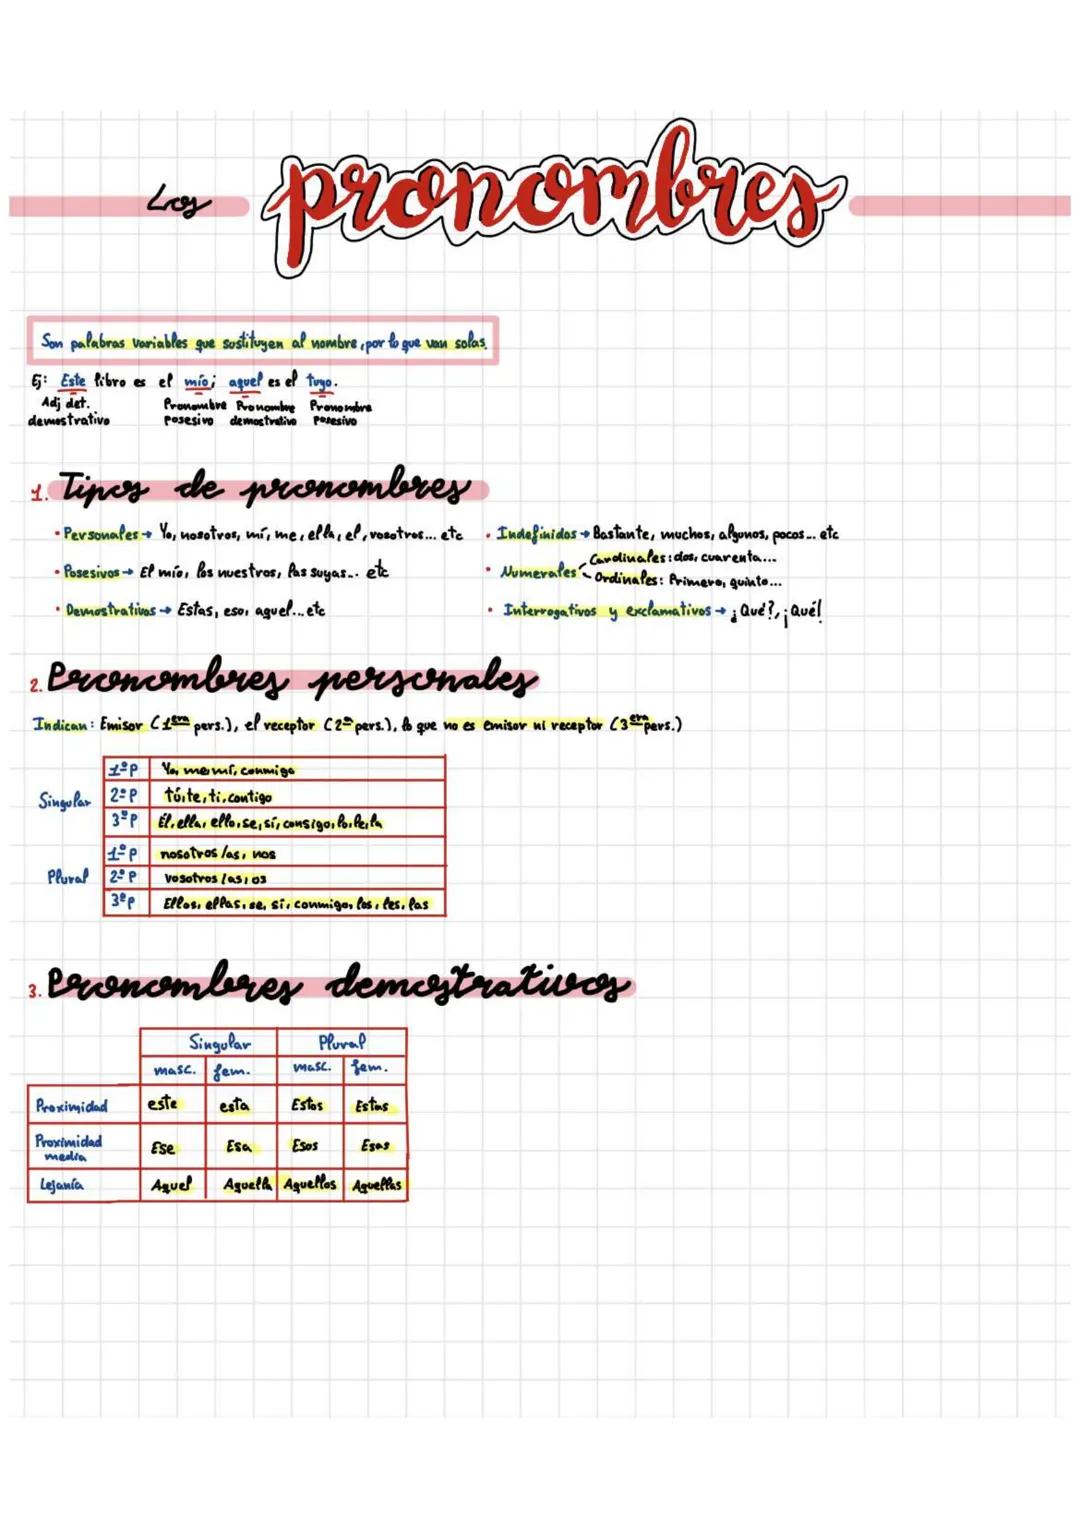 Los pronombres
Son palabras variables que sustituyen al nombre, por lo que van solas.
Ej: Este libro es el mío; aquel es el tuyo.
Adj det. demostrativo
Pronombre posesivo
Pronombre demostrativo
Pronombre posesivo
1. Tipos de pronombres
• Personales → Yo, nosotros, mí, me, ella, el, vosotros... etc
• Posesivos → El mío, los nuestros, las suyas... etc
• Demostrativos → Estas, eso, aquel... etc
• Indefinidos → Bastante, muchos, algunos, pocos... etc
• Numerales
Cardinales: dos, cuarenta...
Ordinales: Primero, quinto...
• Interrogativos y exclamativos → ¿Qué?, ¡Qué!
2. Pronombres personales
Indican: Emisor (1era pers.), el receptor (2ª pers.), lo que no es emisor ni receptor (3era pers.)
Singular
1ª P Yo, me, mí, conmigo
2ª P tú, te, ti, contigo
3ª P Él, ella, ello, se, sí, consigo, lo, le, la
Plural
1ª P nosotros/as, nos
2ª P vosotros/as, os
3ª P Ellos, ellas, se, sí, conmigo, los, les, las
3. Pronombres demostrativos
Singular Plural
masc. fem. masc. fem.
Proximidad este esta Estos Estas
Proximidad media Ese Esa Esos Esas
Lejanía Aquel Aquella Aquellos Aquellas